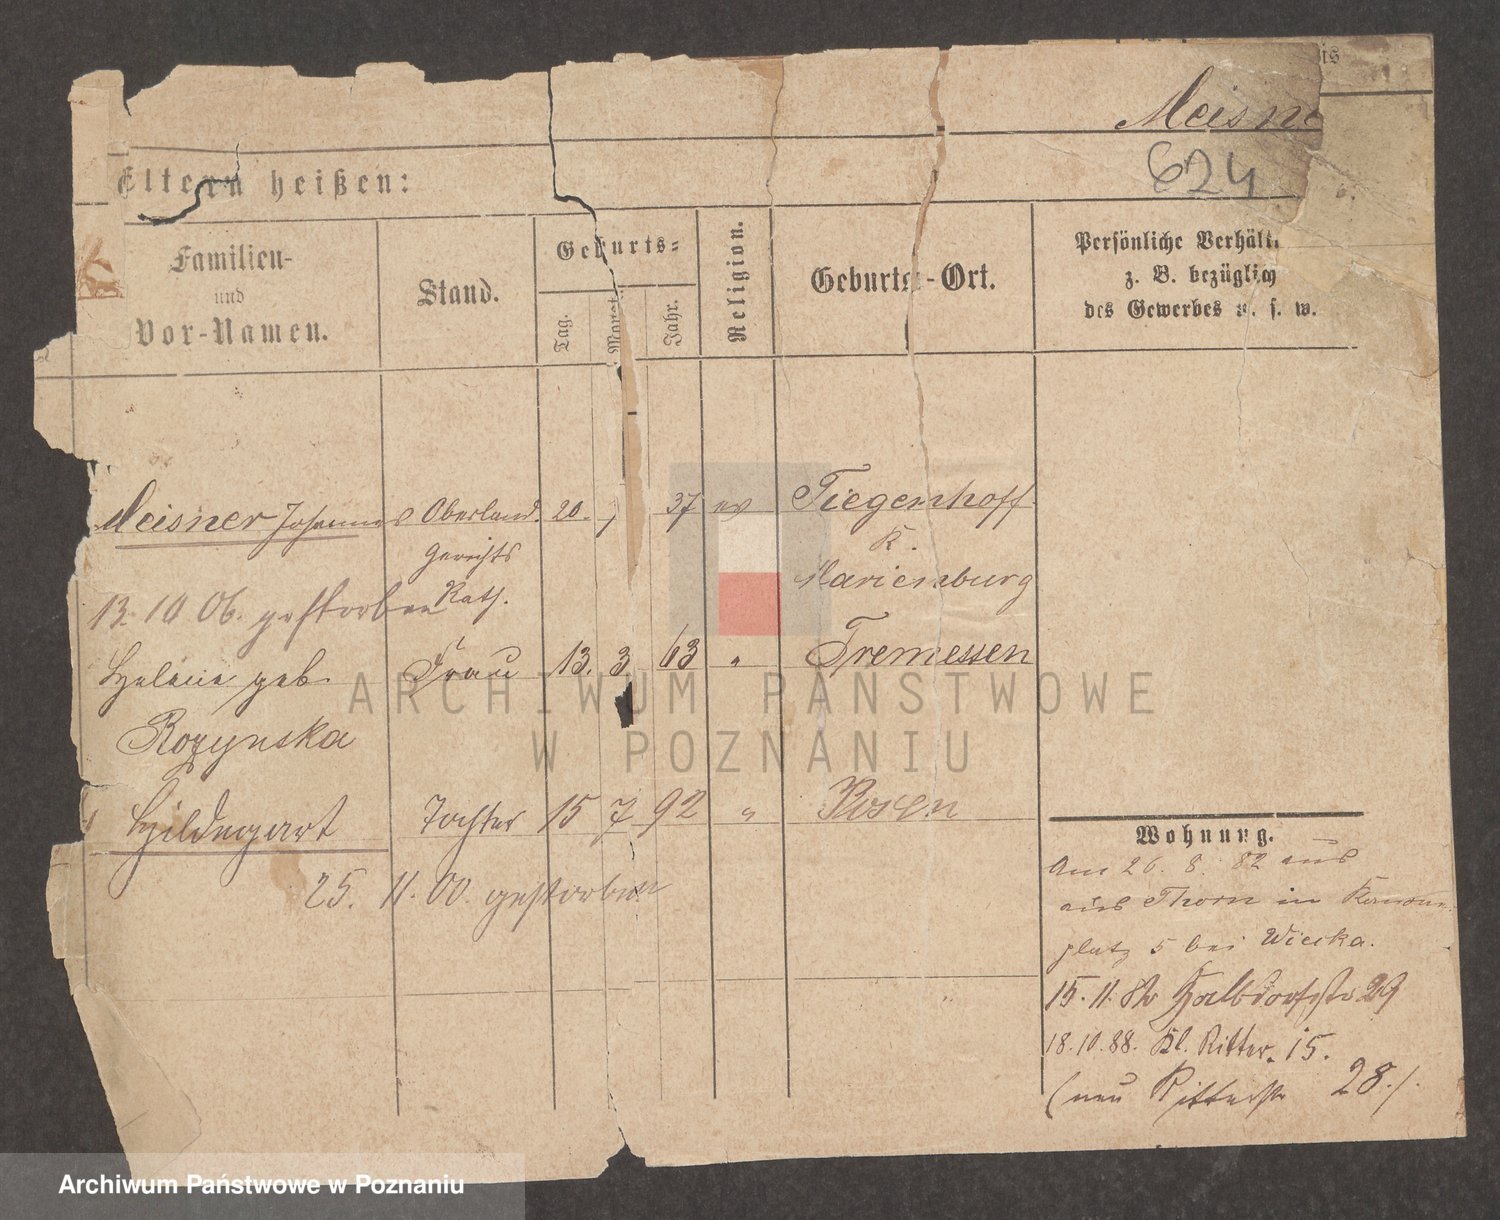 is
Meisne
624
Eltern heißen:
Familien-
und
Vor-Namen.
Stand.
Geburts-
Tag.
Monat
Jahr.
Religion.
Geburts-Ort.
Persönliche Verhält
z. B. bezüglich
des Gewerbes u. s. w.
Meisner Johannes Oberland. 20. 37 ev Tiegenhoff
Gerichts K.
Rath. Marienburg
13. 10 06. gestorben
Helene geb. Frau 13. 3. 63 " Tremessen
Rozynska
Hildegart Tochter 15 7 92 " Posen
25. 11. 00. gestorben
Wohnung.
Am 26. 8. 82 aus
aus Thorn in Kanonen
platz 5 bei Wiecka.
15. 11. Halbdorfstr 29
18. 10. 88. Kl. Ritter. 15.
(neu Ritterstr 28./.
ARCHIWUM PAŃSTWOWE
W POZNANIU
Archiwum Państwowe w Poznaniu